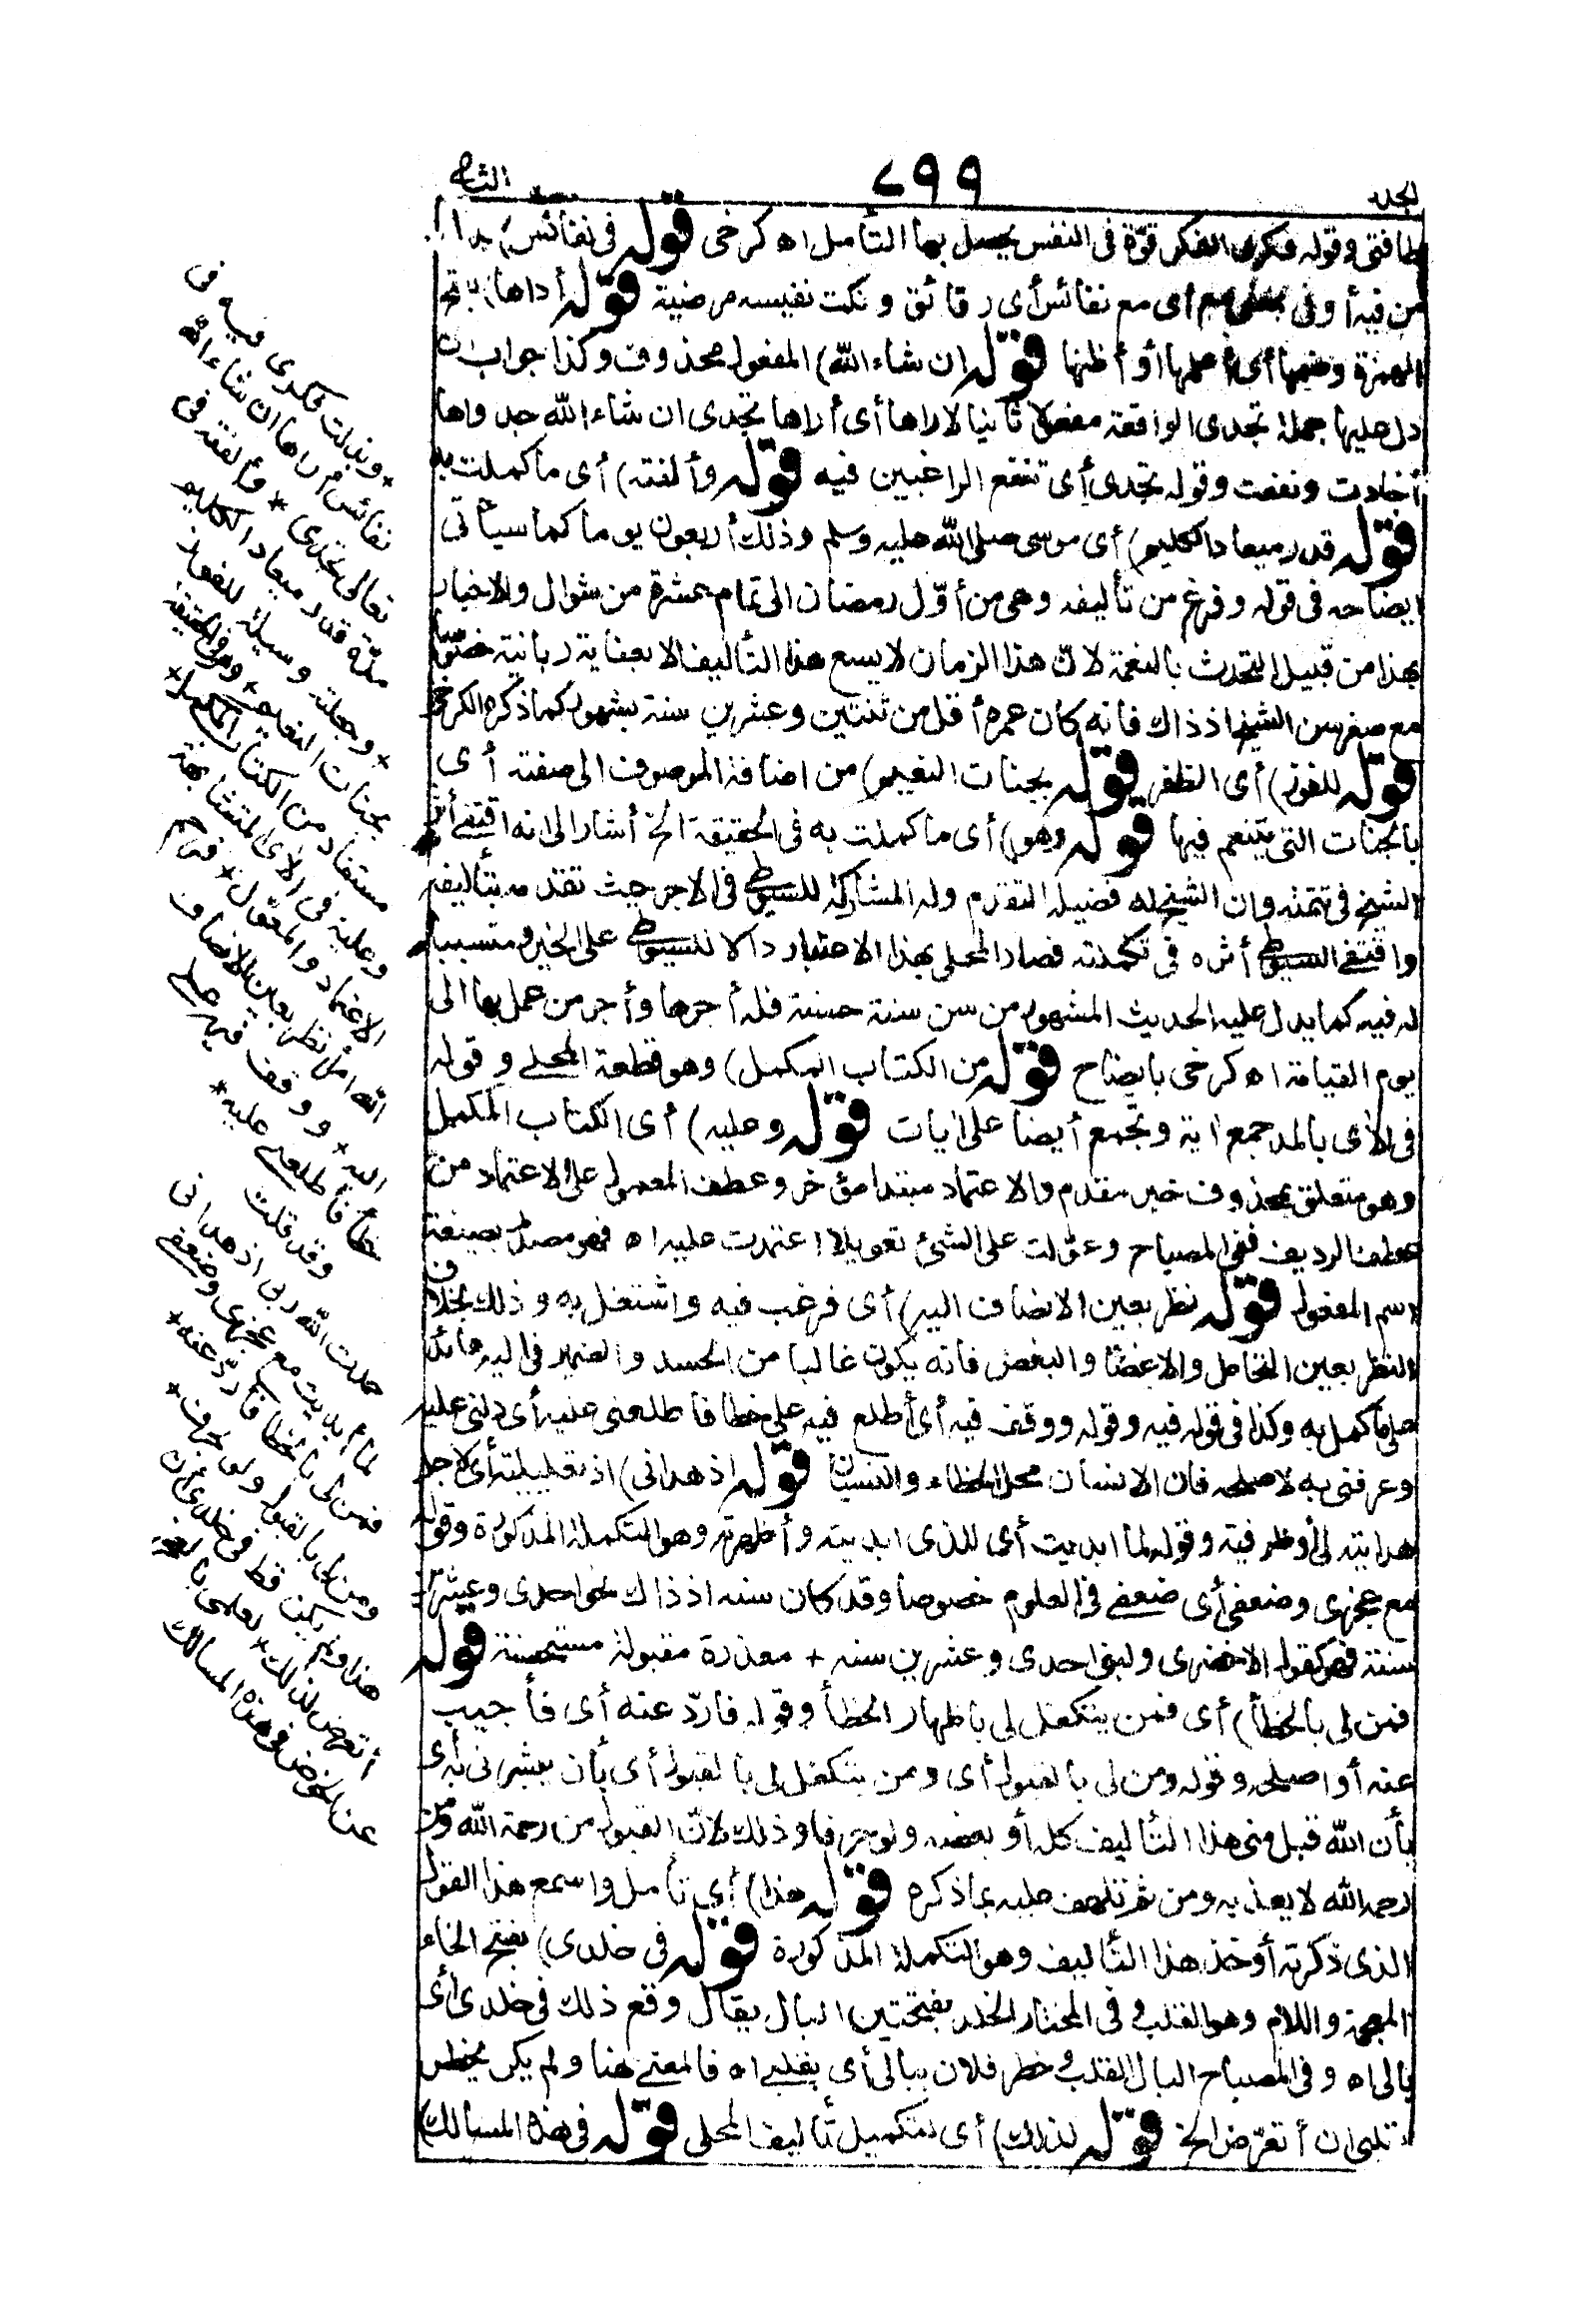 الجلد
٧٩٩
الثاني
طاقتي وقوله وفكري الفكر قوّة في النفس يحصل بها التأمل اه كرخي قوله في نفائس)
من فيه أو في بمعنى مع أي مع نفائس أي رقائق ونكت نفيسه مرضية قوله أراها)
الهمزة وضمها أي أعلمها أو أظنها قوله ان شاء الله) المفعول محذوف وكذا جواب ان
دل عليها جملة تجدى الواقعة مفعولا ثانيا لاراها أي أراها تجدى ان شاء الله جدواها
أفادت ونفعت وقوله تجدى أي تنفع الراغبين فيه قوله وألفته) أي ما كملت به
قوله قدر ميعاد الكليم) أي موسى صلى الله عليه وسلم وذلك أربعون يوما كما سيأتي
ايضاحه في قوله وفرغ من تأليفه وهي من أوّل رمضان الى تمام عشرة من شوال والاخبار
بهذا من قبيل التحدث بالنعمة لانّ هذا الزمان لا يسع هذا التأليف الا بعناية ربانية خصّوصا
مع صغر سن الشيخ اذ ذاك فانه كان عمره أقل من ثنتين وعشرين سنة بشهور كما ذكره الكرخي
قوله للفوز) أي الظفر قوله بجنات النعيم) من اضافة الموصوف الى صفته أي
بالجنات التي يتنعم فيها قوله وهو) أي ما كملت به في الحقيقة الخ أشار الى انه اقتفى أثر
الشيخ في تتمته وان الشيخ له فضيلة التقدم وله المشاركة للسيوطي في الاجر حيث تقدمه بتأليفه
واقتفى السيوطي أثره في تكملته فصار المحلي بهذا الاعتبار دالا للسيوطي على الخير ومتسببا
له فيه كما يدل عليه الحديث المشهور من سن سنة حسنة فله أجرها وأجر من عمل بها الى
يوم القيامة اه كرخي بايضاح قوله من الكتاب المكمل) وهو قطعة المحلي وقوله
في الآى بالمد جمع اية وتجمع أيضا على ايات قوله وعليه) أي الكتاب المكمل
وهو متعلق بمحذوف خبر مقدم والاعتماد مبتدا مؤخر وعطف المعول على الاعتماد من
عطف الرديف ففي المصباح وعوّلت على الشئ تعويلا اعتمدت عليه اه فهو مصدر بصيغة
اسم المفعول قوله نظر بعين الانصاف اليه) أي فرغب فيه واشتغل به وذلك بخلاف
النظر بعين التحامل والاغضا والبغض فانه يكون غالبا من الحسد والضمير في اليه عائد
على ما كمل به وكذا في قوله فيه وقوله ووقف فيه أي أطلع فيه على خطا فاطلعنى عليه أي دلنى عليه
وعرفنى به لاصلحه فان الانسان محل الخطاء والنسيان قوله اذ هدانى) اذ تعليلية أي لاجل
هدايته لى أو ظرفية وقوله لما ابديت أي للذي ابديته وأظهرته وهو التكملة المذكورة وقوله
مع عجزى وضعفى أي ضعفي في العلوم خصوصا وقد كان سنه اذ ذاك نحو احدى وعشرين
سنة فهو كقول الاخضرى ولبنى احدى وعشرين سنه + معذرة مقبولة مستحسنة قوله
فمن لى بالخطأ) أي فمن يتكفل لى باظهار الخطأ وقوله فاردّ عنه أي فأجيب
عنه أو اصلحه وقوله ومن لى بالقبول أي ومن يتكفل لى بالقبول أي بأن يبشرنى به أي
بأن الله قبل منى هذا التأليف كله أو بعضه ولو حرفا وذلك لانّ القبول من رحمة الله ومن
رحمه الله لا يعذبه ومن ثم تلهف عليه بما ذكره قوله هذا) أي تأمل واسمع هذا القول
الذي ذكرته أو خذ هذا التأليف وهو التكملة المذكورة قوله في خلدى) بفتح الخاء
المعجمة واللام وهو القلب وفي المختار الخلد بفتحتين البال يقال وقع ذلك في خلدى أي
بالى اه وفي المصباح البال القلب وخطر فلان ببالى أي بقلبي اه فالمعنى هنا ولم يكن يخطر
بقلبي ان أتعرّض الخ قوله لذلك) أي لتكميل تأليف المحلى قوله في هذه المسالك)
+ وبذلت فكرى فيه في
نفائس أراها ان شاء الله
تعالى تجدى + وألفته في
مدّة قدر ميعاد الكليم
+ وجعلته وسيلة للفوز
بجنات النعيم + وهو في الحقيقة
مستفاد من الكتاب المكمل +
وعليه في الآى المتشابهة
الاعتماد والمعوّل + فرحم
الله امرأ نظر بعين الانصاف
اليه + ووقف فيه على
خطأ فأطلعني عليه +
وقد قلت
حمدت الله ربى اذ هدانى
لما أبديت مع عجزى وضعفى
فمن لى بالخطا فأردّ عنه +
ومن لى بالقبول ولو بحرف +
هذا ولم يكن قط في خلدى أن
أتعرض لذلك + لعلمى بالعجز
عن الخوض في هذه المسالك